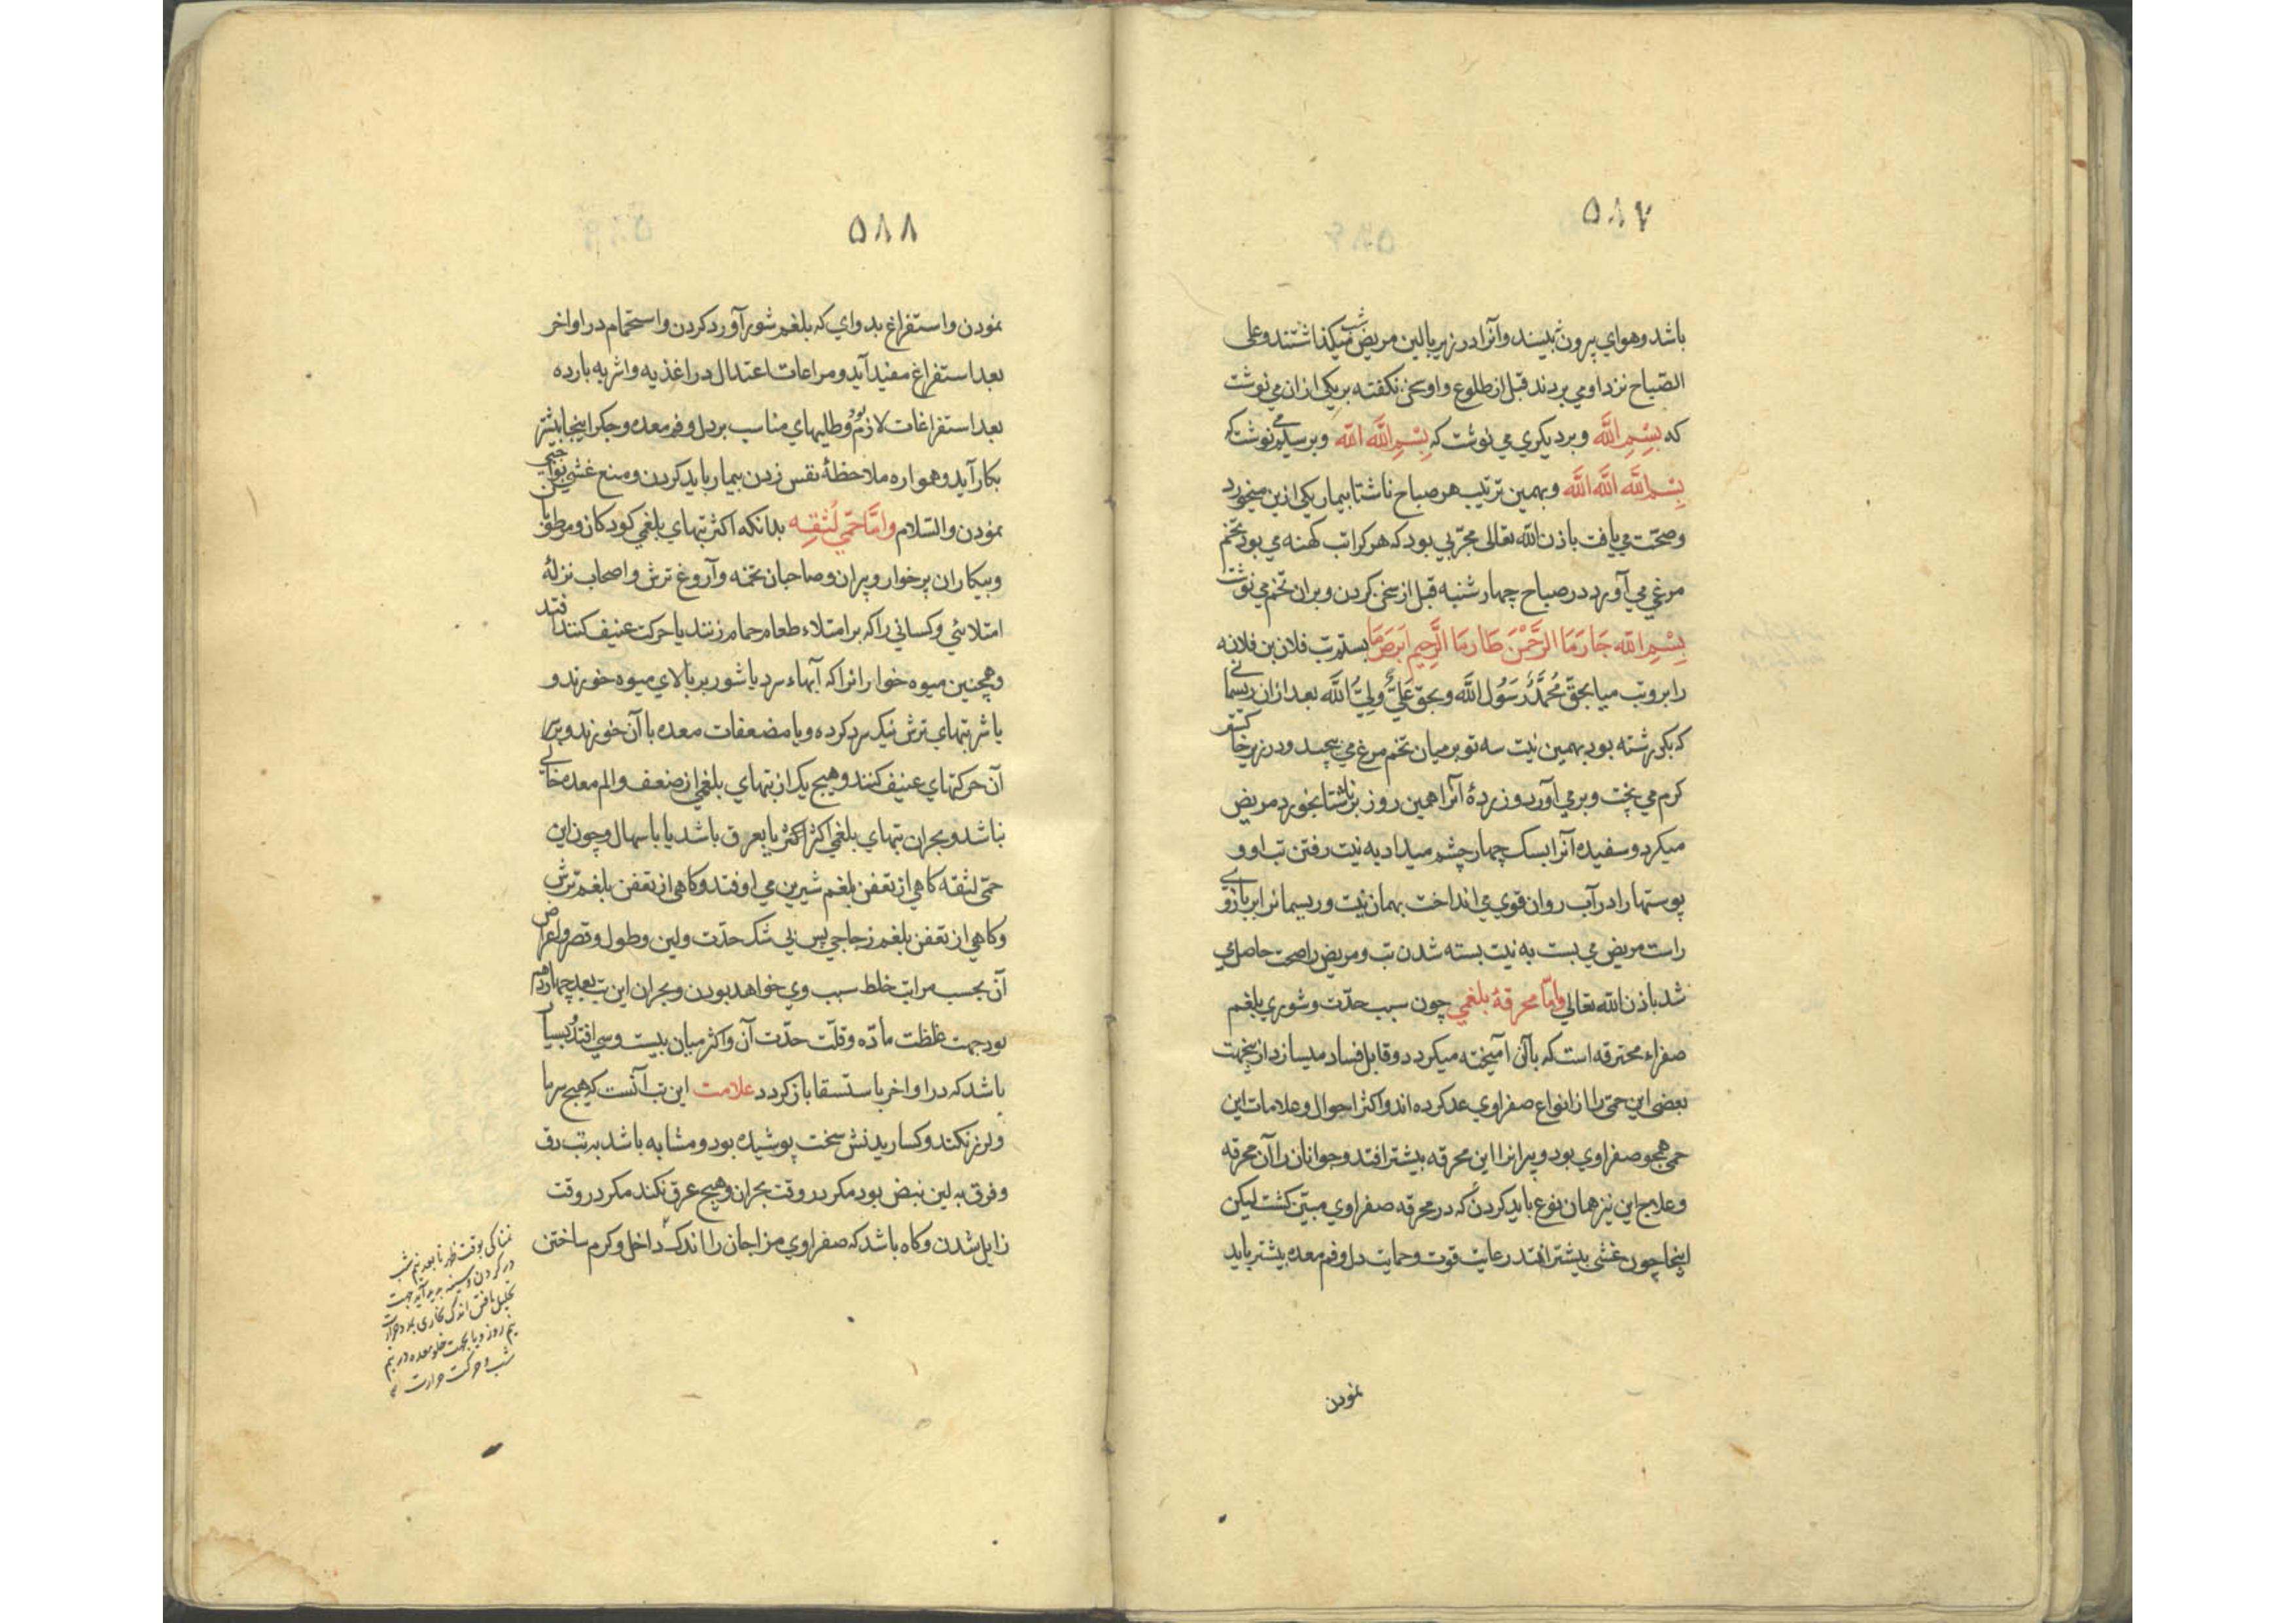 ۵۸۷
باشد وهواي بیرون نبیند وآنرا در زیر بالین مریض شب میکذاشتند وعلی
الصّباح نزد او می بردند قبل از طلوع واو سخن نکفته بر یکی ازان می نوشت
که بِسْمِ اللَّه وبر دیکری می نوشت که بِسْمِ اللَّه اللَّه وبر سلمی نوشت که
بِسْمِ اللَّه اللَّه اللَّه وبهمین ترتیب هر صباح ناشتا بیمار یکی ازین میخورد
وصحّت می یافت باذن الله تعالی مجرّبی بود که هر کرا تب کهنه می بود تخم
مرغی می آورد در صباح چهارشنبه قبل از سخن کردن وبران تخم می نوشت
بِسْمِ اللَّه جَارَمَا الرَّحْمنَ طَارمَا الرَّحِیم اَبرَصَمَا بستم تب فلان بن فلانه
را برو تب میا بحقّ مُحمَّدٌ رَسُولُ اللَّه وبحقّ عَلِیٌّ وَلِیُّ اللَّه بعد ازان ریسمانی
که بکر رشته بود بهمین نیت سه تو بر میان تخم مرغ می پیچید ودر زیر خاکستر
کرم می پخت وبر می آورد وزردهٔ آنرا همین روز بر ناشتا بخورد مریض
میکرد وسفیده آنرا بسک چهار چشم میداد به نیت رفتن تب او و
پوستها را در آب روان قوی می انداخت بهمان نیت وریسمانرا بر بازوی
راست مریض می بست به نیت بسته شدن تب ومریض را صحت حاصل می
شد باذن الله تعالی وامّا محرقهٔ بلغمی چون سبب حدّت وشوری بلغم
صفراء محترقه است که بآن آمیخته میکردد وقابل فساد میسازد ازینجهت
بعضی این حمّی را از انواع صفراوی عد کرده اند واکثر احوال وعلامات این
حمی همچو صفراوی بود وپیرانرا این محرقه بیشتر افتد وجوانان را آن محرقه
وعلاج این نیز همان نوع باید کردن که در محرقه صفراوی مبیّن کشت لیکن
اینجا چون غشی بیشتر افتد رعایت قوت وحمایت دل وفم معده بیشتر باید
نمودن
۵۸۸
نمودن واستفراغ بدوای که بلغم شور آورد کردن واستحمام در اواخر
بعد استفراغ مفید آید ومراعات اعتدال در اغذیه واشربه بارده
بعد استفراغات لازم بود وطلیهای مناسب بر دل وفم معده وجکر اینجا بیشتر
بکار آید وهمواره ملاحظهٔ نفس زدن بیمار باید کردن ومنع غشی بواجبی
نمودن والسّلام وامّا حمّی لَثقِه بدانکه اکثر تبهای بلغمی کودکان ومرطوبان
وبیکاران پرخوار وپیران وصاحبان تخمه وآروغ ترش واصحاب نزلهٔ
امتلائی وکسانی را که بر امتلاء طعام حمام زنند یا حرکت عنیف کنند افتد
وهمچنین میوه خوارانرا که آبهاء سرد یا شور بر بالای میوه خورند و
یا شربتهای ترش نیک سرد کرده ویا مضعفات معده با آن خورند وبر
آن حرکتهای عنیف کنند وهیچ یک از تبهای بلغمی از ضعف والم معده خالی
نباشد وبحران تبهای بلغمی اکثر یا بعرق باشد یا باسهال وچون این
حمّی لثقه کاهی از تعفن بلغم شیرین می اوفتد وکاهی از تعفن بلغم ترش
وکاهی از تعفن بلغم زجاجی پس بی شک حدّت ولین وطول وقصر واعراض
آن بحسب مراتب خلط سبب وی خواهد بودن وبحران این تب بعد چهاردهم
بود جهت غلظت مادّه وقلّت حدّت آن واکثر میان بیست وسی افتد وبسیار
باشد که در اواخر باستسقا باز کردد علامت این تب آنست که هیچ سرما
ولرز نکند وکسارید نش سخت پوشیده بود ومشابه باشد به تب دق
وفرق به لین نبض بود مکر در وقت بحران وهیچ عرق نکند مکر در وقت
زایل شدن وکاه باشد که صفراوی مزاجان را اندک داخل وکرم ساختن
نمناکی بوقت ظهر تا بعد نیم شب
در کردن وسینه پدید آید جهت
تحلیل یافتن اندک بخاری بدو حرارت
نیم روز ویا بجهت خلو معده در نیم
شب وحرکت حرارت